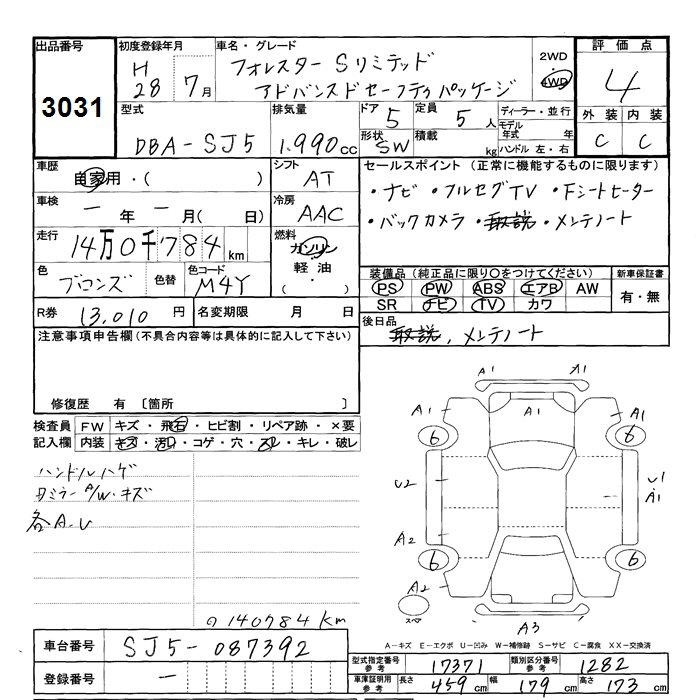 出品番号
3031
初度登録年月
H28 7月
車名・グレード
フォレスター Sリミテッド
アドバンスドセーフティパッケージ
2WD
4WD
評価点
4
外装 内装
C C
型式
DBA-SJ5
排気量
1.990cc
ドア
5
定員
5人
形状
SW
積載
kg
ディーラー・並行
モデル年式 年
ハンドル 左・右
車歴
自家用・( )
シフト
AT
車検
一年一月( 日)
冷房
AAC
走行
14万0千784km
燃料
ガソリン
軽油
( ・ )
色
ブロンズ
色替
色コード
M4Y
R券
13,010円
名変期限 月 日
セールスポイント (正常に機能するものに限ります)
・ナビ ・フルセグTV ・Fシートヒーター
・バックカメラ ・取説 ・メンテノート
装備品 (純正品に限り○をつけてください)
PS PW ABS エアB AW
SR ナビ TV カワ
新車保証書
有・無
後日品
取説, メンテノート
注意事項申告欄 (不具合内容等は具体的に記入して下さい)
修復歴 有 〔箇所 〕
検査員記入欄
FW キズ・飛石・ヒビ割・リペア跡・×要
内装 キズ・汚れ・コゲ・穴・スレ・キレ・破レ
ハンドルハゲ
A/W・キズ
各A.U
140784km
A1 A1
A1 A1 A1
6 6
U2 U1
A1
A2
6 6
A2
スペア
A3
A-キズ E-エクボ U-凹み W-補修跡 S-サビ C-腐食 XX-交換済
車台番号
SJ5-087392
登録番号
一
型式指定番号 参考
17371
類別区分番号 参考
1282
車庫証明用 参考
長さ 459cm 幅 179cm 高さ 173cm